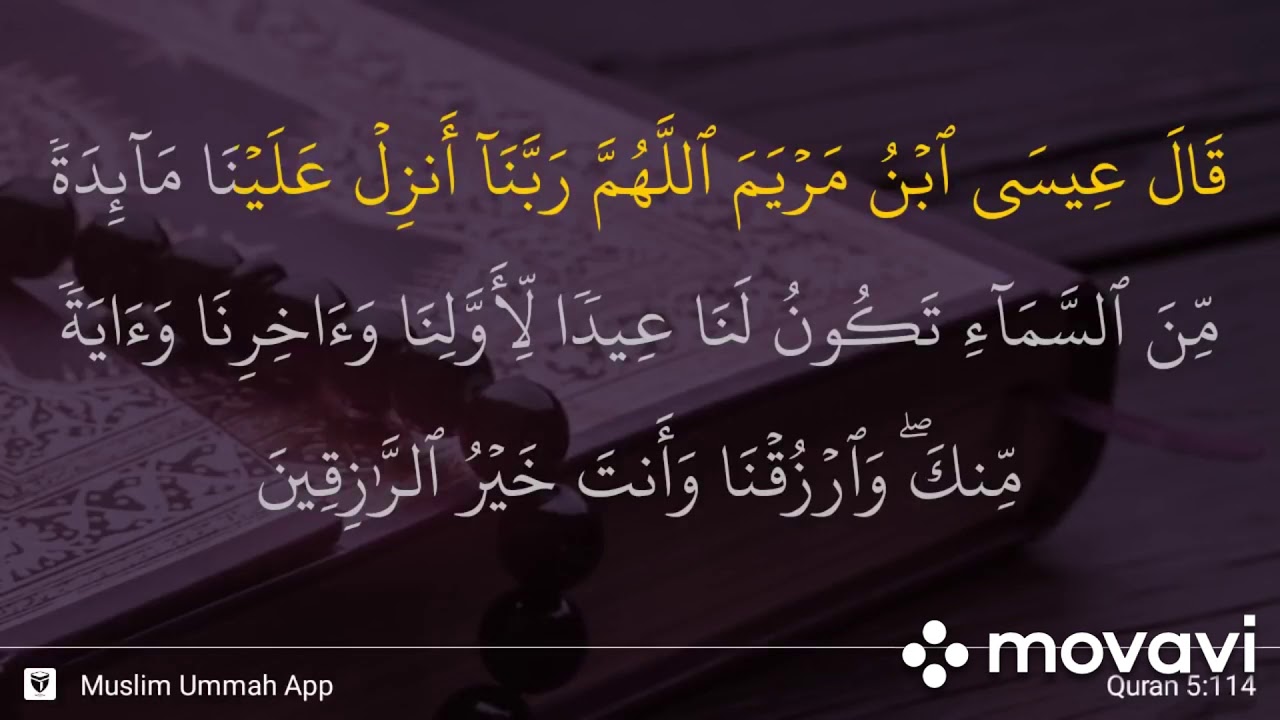 قَالَ عِيسَى ٱبْنُ مَرْيَمَ ٱللَّهُمَّ رَبَّنَآ أَنزِلْ عَلَيْنَا مَآئِدَةً
مِّنَ ٱلسَّمَآءِ تَكُونُ لَنَا عِيدًا لِّأَوَّلِنَا وَءَاخِرِنَا وَءَايَةً
مِّنكَ ۖ وَٱرْزُقْنَا وَأَنتَ خَيْرُ ٱلرَّٰزِقِينَ
movavi
Muslim Ummah App
Quran 5:114